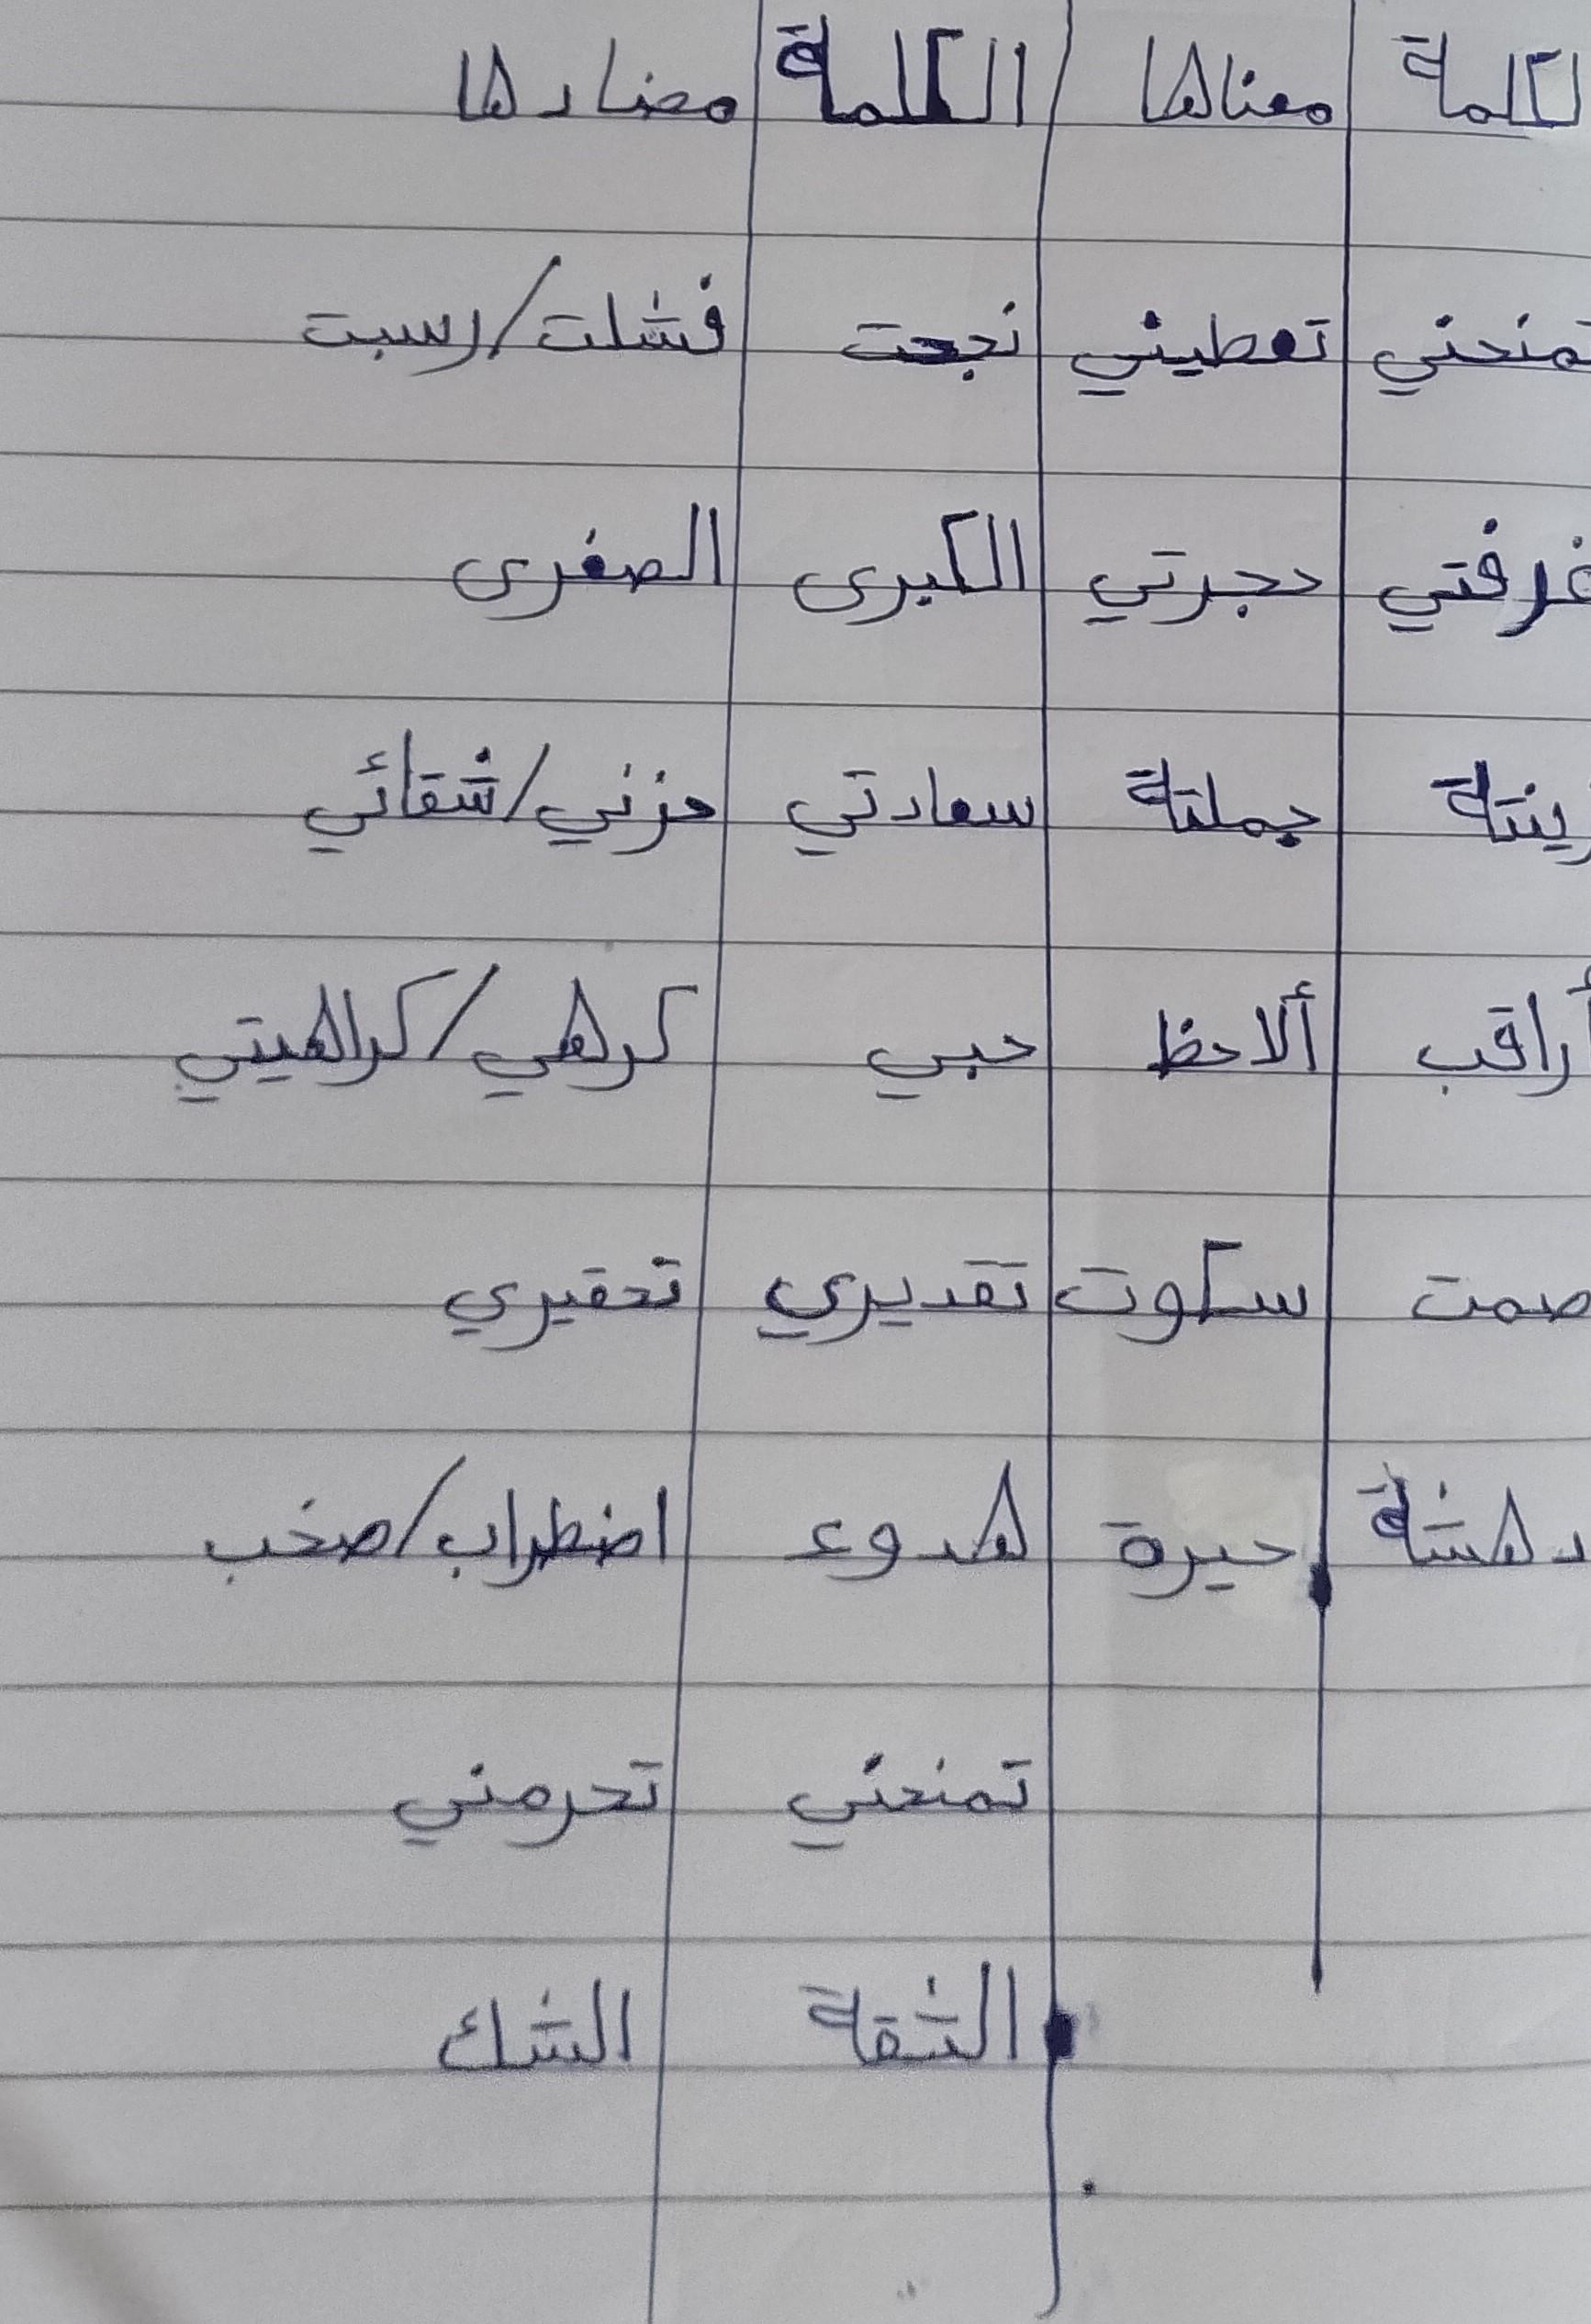 لكلمة معناها الكلمة مضادها
تمنحني تعطيني نجحت فشلت/رسبت
غرفتي حجرتي الكبرى الصغرى
زينتة جملتة سعادتي حزني/شقائي
أراقب ألاحظ حبي كرهي/كراهيتي
صمت سكوت تقديري تحقيري
دهشة حيرة هدوء اضطراب/صخب
تمنحني تحرمني
الثقة الشك